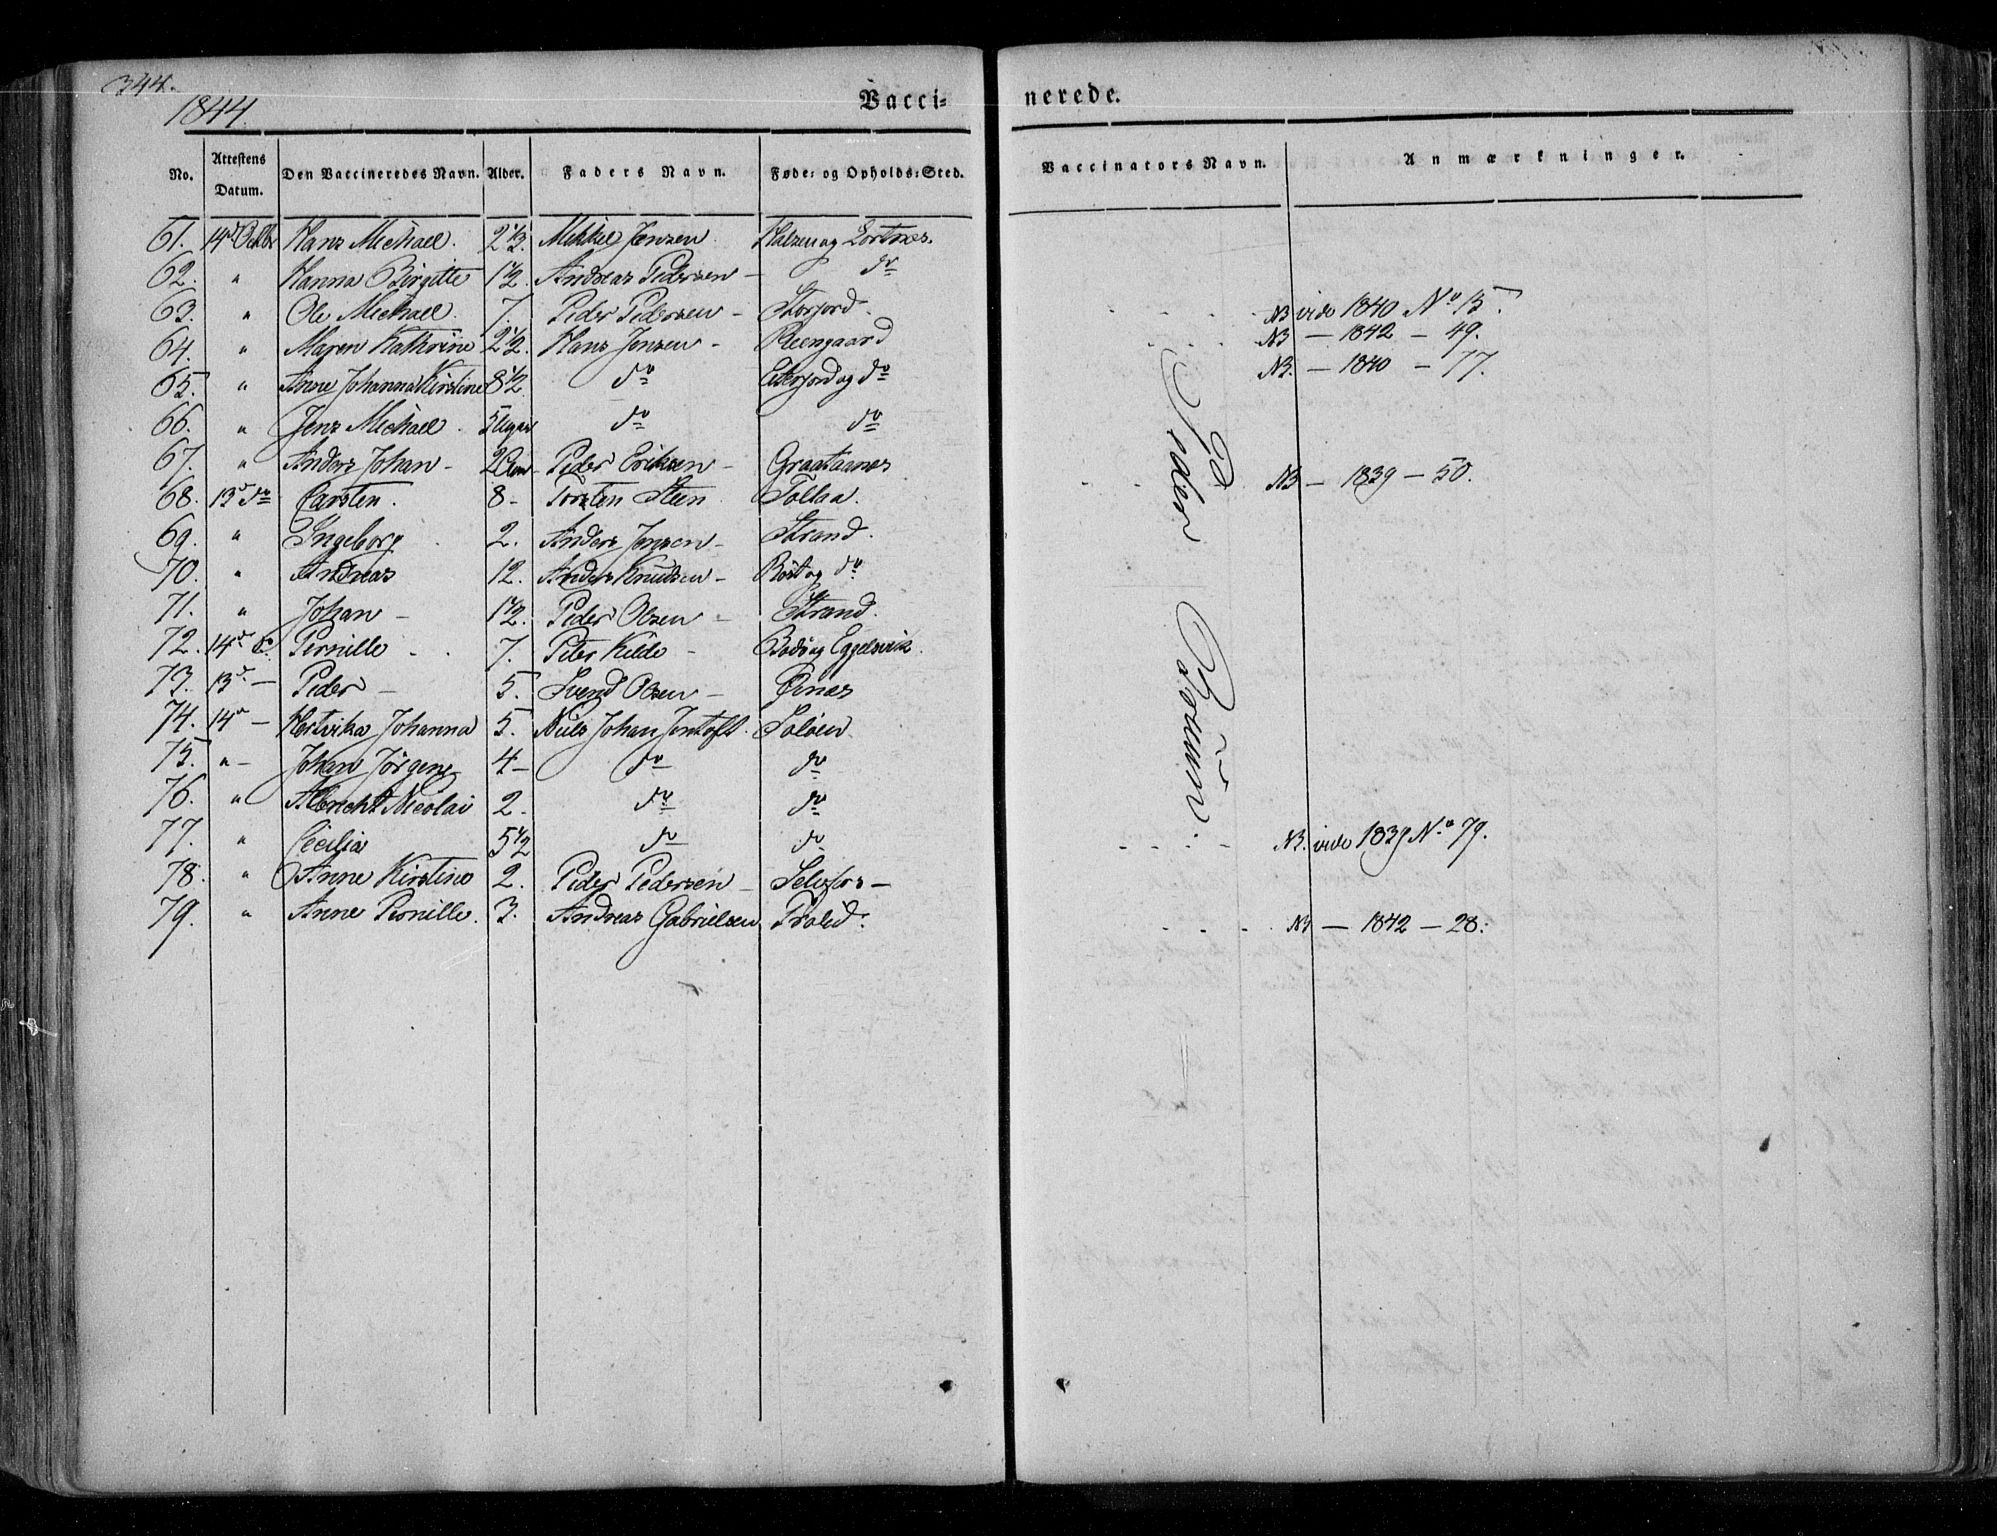 344.
1844
Vacci- nerede.
No. Attestens Datum. Den Vaccineredes Navn. Alder. Faders Navn. Føde- og Opholds-Sted. Vaccinators Navn. Anmærkninger.
61. 14d Octbr Hans Michael. 2 1/3. Mikkel Jensen og Lortnes.
62. " Hanna Birgitte 1 1/2. Andreas Pedersen - do
63. " Ole Michael. 7. Peder Pedersen - Storjord. NB vide 1840 No 15.
64. " Maren Kathrine 2 1/2. Hans Jensen - Reengaard NB - 1842 - 49.
65. " Anne Johanna Kirstine 8 1/2 do Eiterjord og do NB. - 1840 - 77.
66. " Jens Michael. 5 Uger do do
67. " Anders Johan - 2 Aar - Peder Eriksen - Graataanes
68. 13d do Carsten. 8 - Torsten Steen. Tollaa. NB - 1839 - 50.
69. " Ingeborg. 2. Anders Jensen - Strand.
70. " Andreas 12. Anders Knudsen - Röst og do
71. " Johan - 1 1/2. Peder Olsen - Strand.
72. 14d Pernille 7. Peter Kilde - Bodø og Eggesvik.
73. 13d - Peder - 5. Svend Olsen - Øines
74. 14d - Hertvika Johanna 5. Niels Johan Jentoft. Soløen
75. " - Johan Jörgen 4 - do do
76. " Albricht Nicolai 2. do do
77. " Cecilia 5 1/2 do do NB. vide 1839 No 79.
78. " Anne Kirstine 2. Peder Pedersen - Selsfors -
79. " Anne Pernille. 3. Andreas Gabrielsen Tralid. NB - 1842 - 28.
Peder